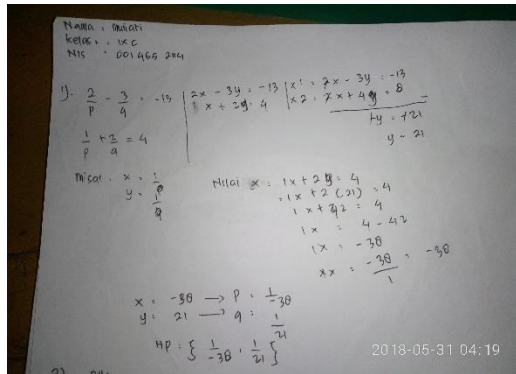 Nama : Muliati
kelas : IX C
NIS : 001465 204
1). 2/p - 3/q = -13 | 2x - 3y = -13 | x1 = 2x - 3y = -13
1/p + 2/q = 4 | 1x + 2y = 4 | x2 = 2x + 4y = 8
+y = +21
y = 21
Misal : x = 1/p
y = 1/q
Nilai x = 1x + 2y = 4
= 1x + 2 (.21) = 4
1x + 42 = 4
1x = 4 - 42
1x = -38
x = -38/1 = -38
x = -38 → p = 1/-38
y = 21 → q = 1/21
HP = { 1/-38 , 1/21 }
2018-05-31 04:19